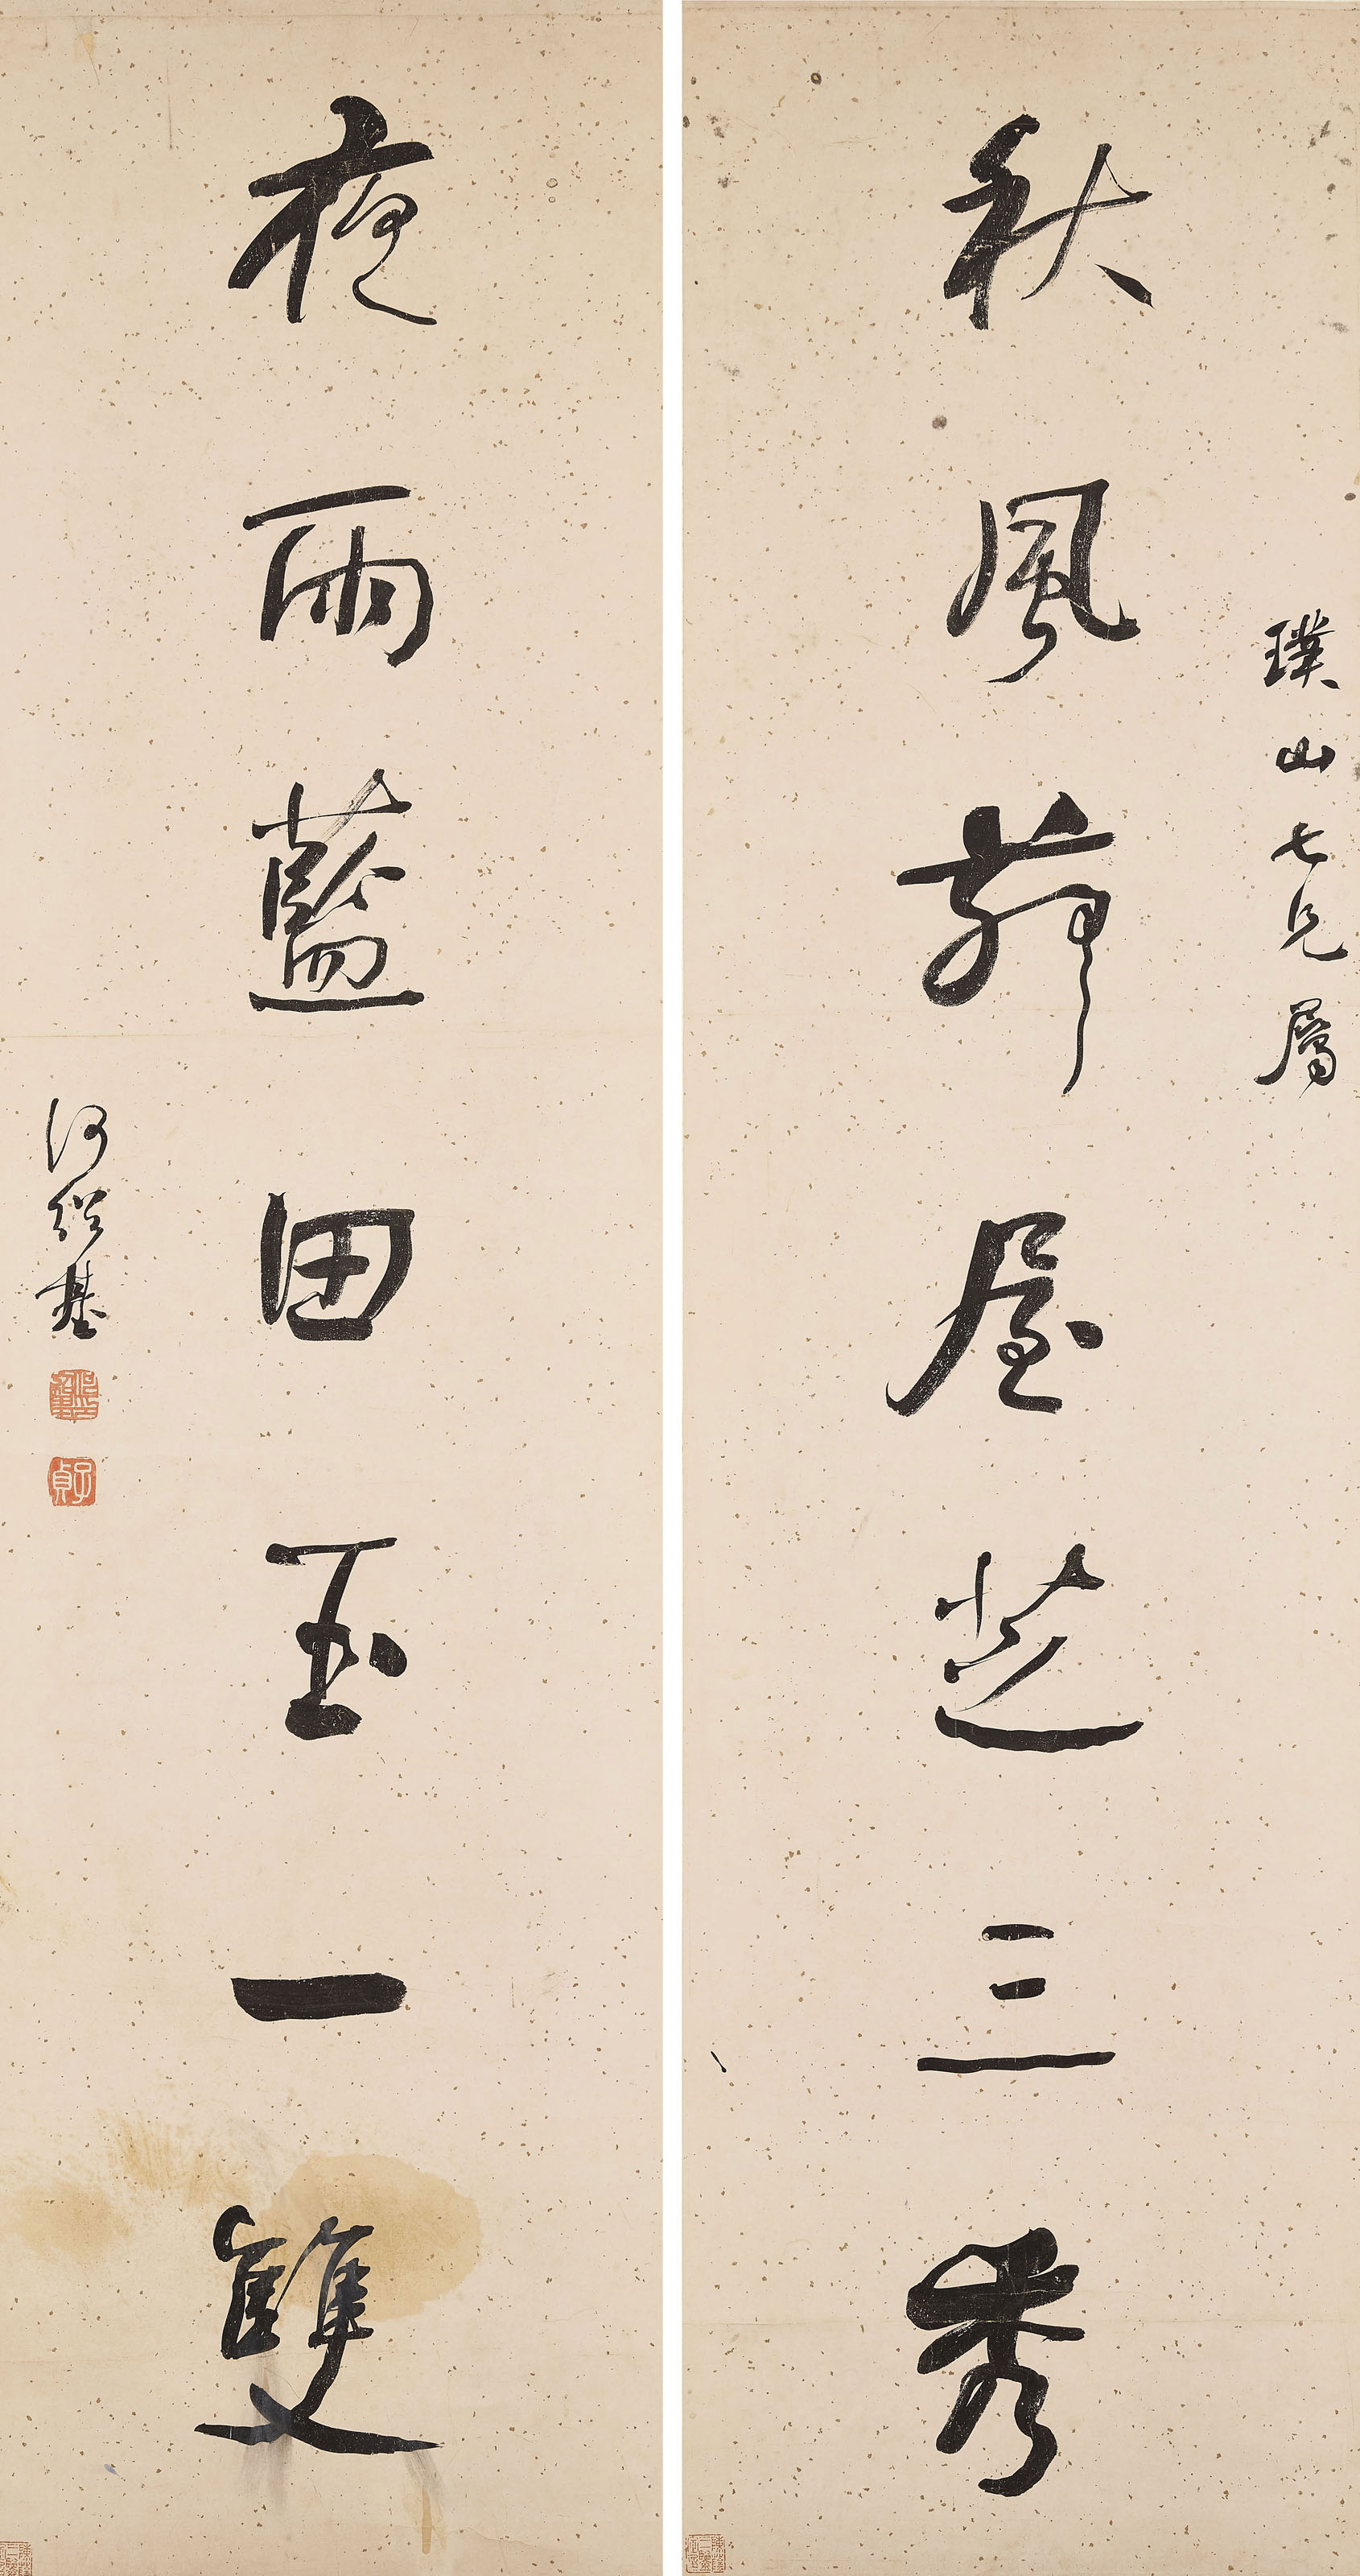 璞山七兄屬
秋風薜屋芝三秀
夜雨藍田玉一雙
何紹基
子貞